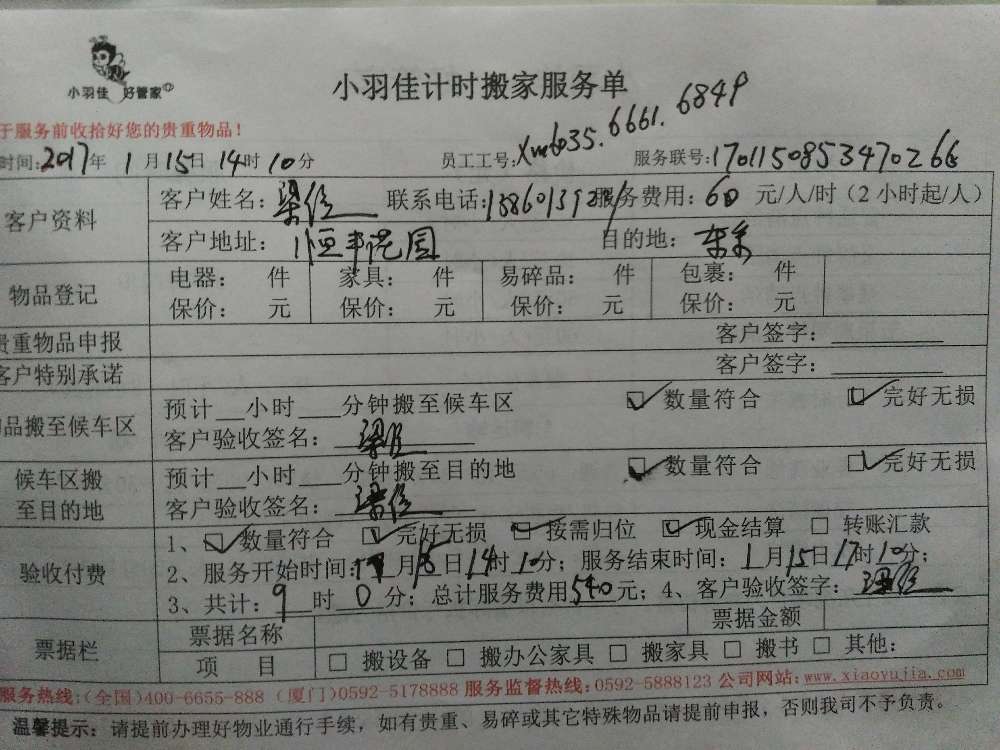 小羽佳 好管家
小羽佳计时搬家服务单
于服务前收拾好您的贵重物品！
时间:2017年 1月15日 14时10分 员工工号: 6661.6849 服务联号:1701150853470266
客户资料 客户姓名: 联系电话: 服务费用:60 元/人/时（2小时起/人）
客户地址: 恒丰花园 目的地:
物品登记 电器: 件 家具: 件 易碎品: 件 包裹: 件
保价: 元 保价: 元 保价: 元 保价: 元
贵重物品申报 客户签字:
客户特别承诺 客户签字:
品搬至候车区 预计__小时___分钟搬至候车区 数量符合 完好无损
客户验收签名:
候车区搬至目的地 预计__小时___分钟搬至目的地 数量符合 完好无损
客户验收签名:
验收付费 1、数量符合 完好无损 按需归位 现金结算 转账汇款
2、服务开始时间: 月15日14时10分；服务结束时间:1月15日17时10分；
3、共计:9时0分；总计服务费用540元；4、客户验收签字:
票据栏 票据名称 票据金额
项 目 搬设备 搬办公家具 搬家具 搬书 其他:
服务热线:(全国)400-6655-888（厦门)0592-5178888 服务监督热线:0592-5888123 公司网站:www.xiaoyujia.com
温馨提示: 请提前办理好物业通行手续，如有贵重、易碎或其它特殊物品请提前申报，否则我司不予负责。